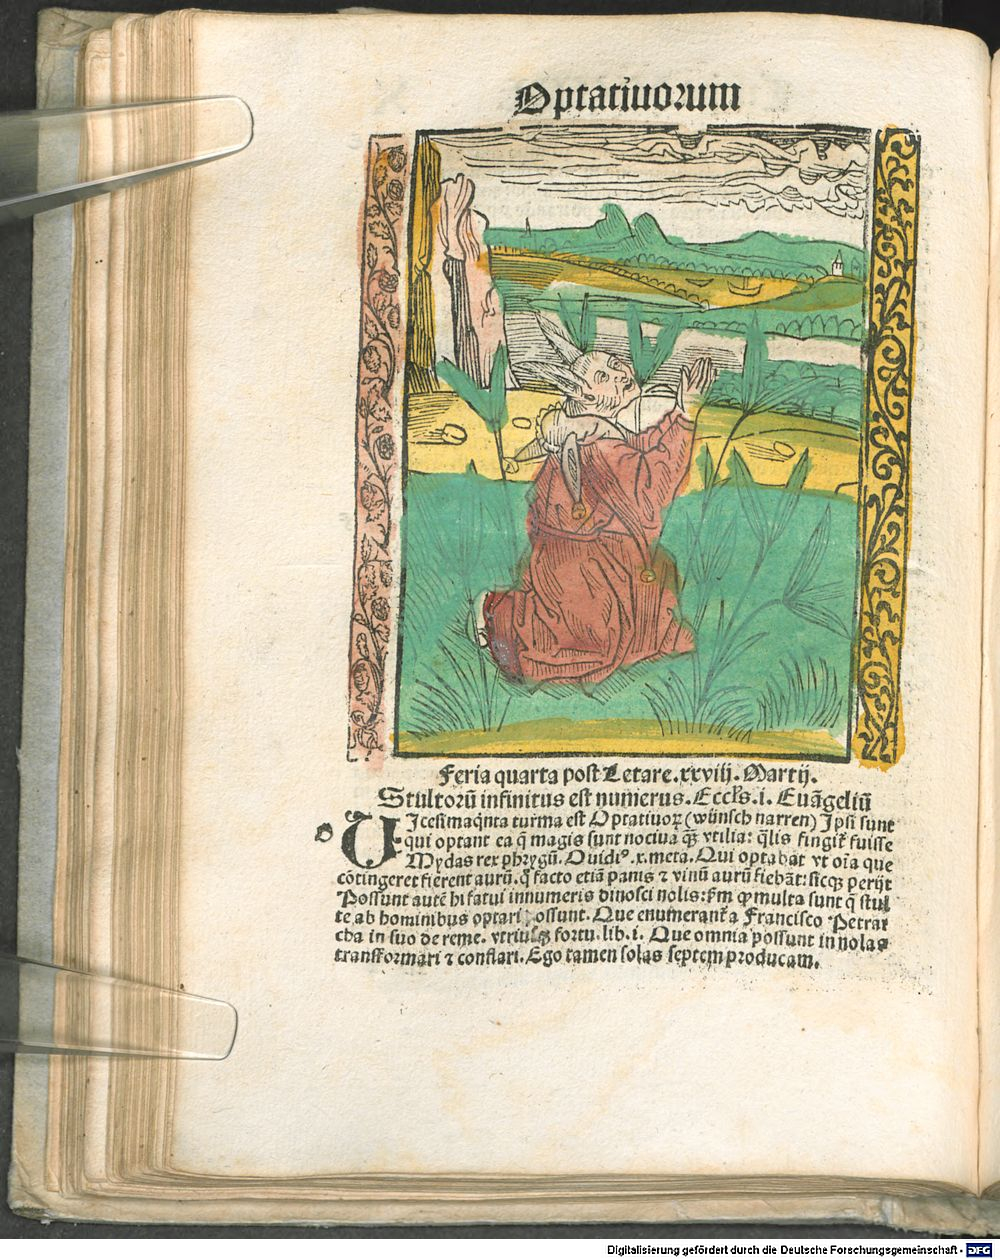 Optatiuorum
Feria quarta post Letare. xxviij. Martij.
Stultorū infinitus est numerus. Eccl's. i. Euāgeliū
o
UJcesimaq̄nta turma est Optatiuoꝝ (wünsch narren) Ipsi sunt
qui optant ea q̄ magis sunt nociua q̄ꝫ vtilia: q̄lis fingit̄ fuisse
Mydas rex phrygū. Ouidiꝰ .x. meta. Qui optabat vt oīa que
cōtingeret fierent aurū. q̄ facto etiā panis ⁊ vinū aurū fiebāt: sicqꝫ perijt
Possunt autē hi fatui innumeris dinosci nolis: ẜm qꝙ multa sunt q̄ stul
te ab hominibus optari possunt. Que enumerant̄ a Francisco Petrar
cha in suo de reme. vtriusqꝫ fortu. lib. i. Que omnia possunt in nolas
transformari ⁊ conflari. Ego tamen solas septem producam.
Digitalisierung gefördert durch die Deutsche Forschungsgemeinschaft - DFG